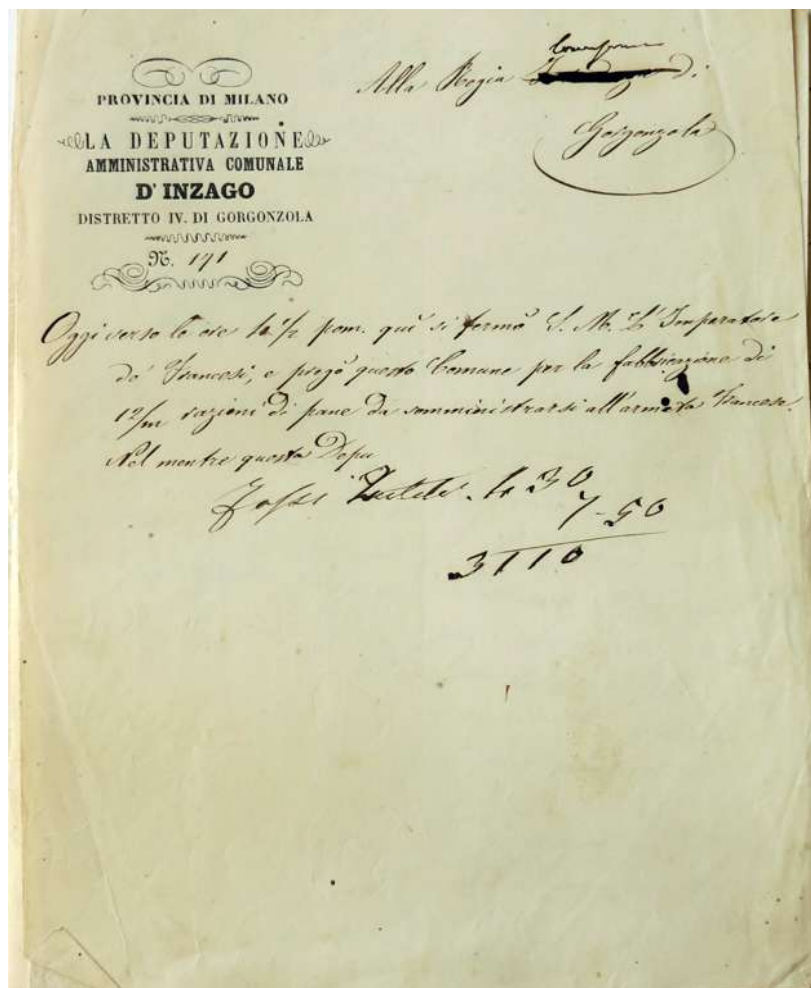 PROVINCIA DI MILANO
LA DEPUTAZIONE
AMMINISTRATIVA COMUNALE
D' INZAGO
DISTRETTO IV. DI GORGONZOLA
N. 171
Alla Regia di
Gorgonzola
Oggi verso le ore 1/2 pom. quì si fermò S. M. L' Imperatore
de' Francesi, e pregò questo Comune per la fabbricazione di
12/m razioni di pane da somministrarsi all' armata Francese.
Nel mentre questa Depu
30
7-50
3110